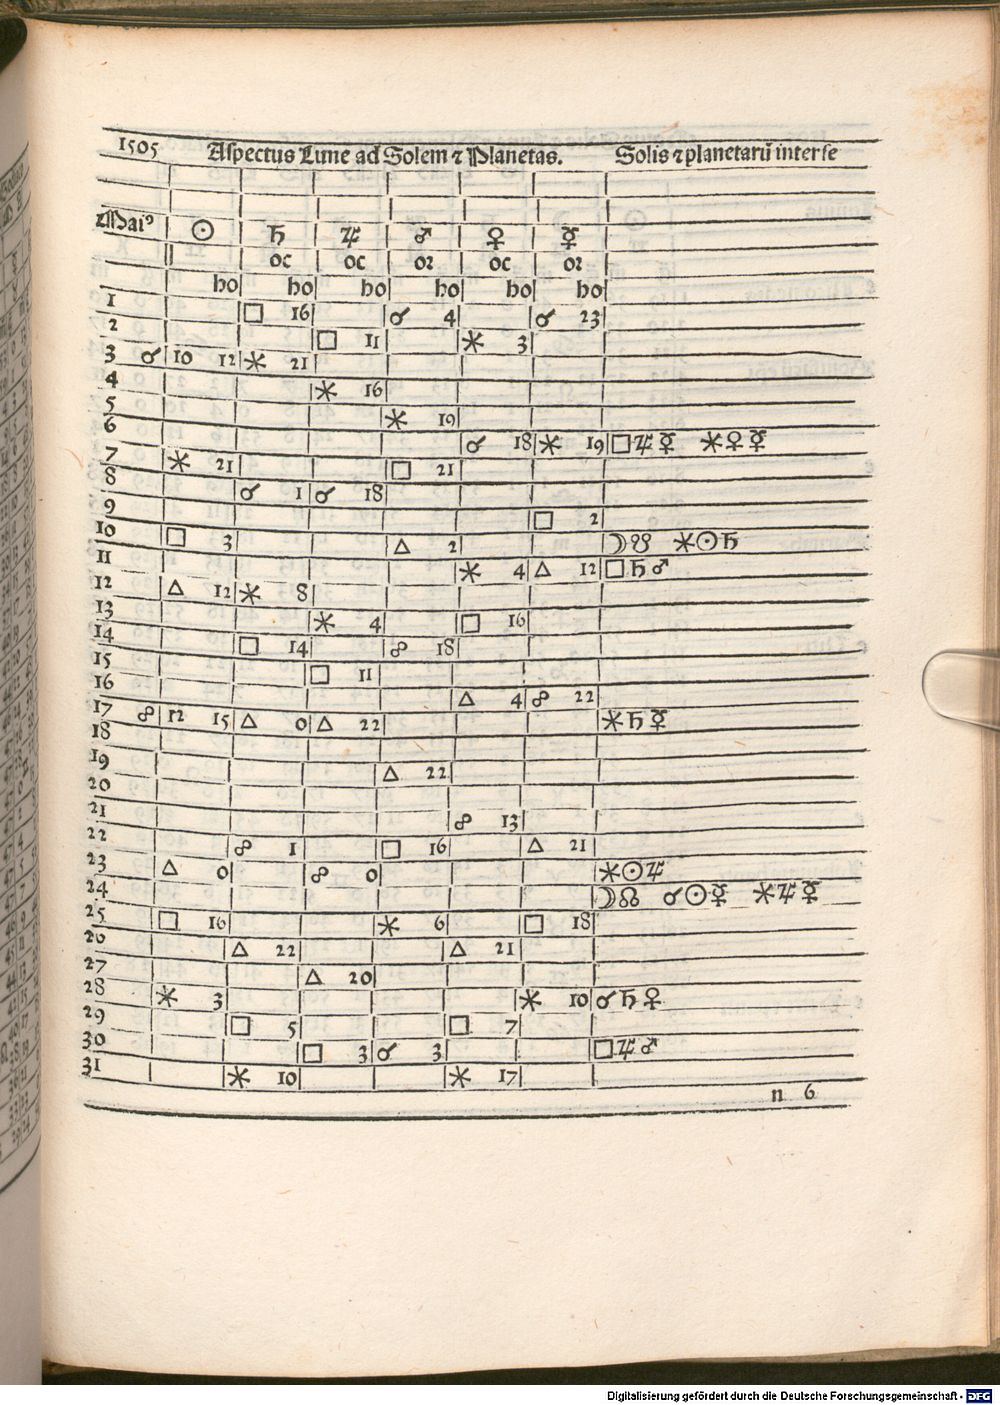 1505 Aspectus Lune ad Solem ⁊ Planetas. Solis ⁊ planetarū inter se
Maiꝰ ☉ ♄ ♃ ♂ ♀ ☿
oc oc or oc or
ho ho ho ho ho ho
1 □ 16 ☌ 4 ☌ 23
2 □ 11 ⚹ 3
3 ☌ 10 12 ⚹ 21
4 ⚹ 16
5 ⚹ 19
6 ☌ 18 ⚹ 19 □♃☿ ⚹♀☿
7 ⚹ 21 □ 21
8 ☌ 1 ☌ 18
9 □ 2
10 □ 3 △ 2 ☽☋ ⚹☉♄
11 ⚹ 4 △ 12 □♄♂
12 △ 12 ⚹ 8
13 ⚹ 4 □ 16
14 □ 14 ☍ 18
15 □ 11
16 △ 4 ☍ 22
17 ☍ 12 15 △ 0 △ 22 ⚹♄☿
18
19 △ 22
20
21 ☍ 13
22 ☍ 1 □ 16 △ 21
23 △ 0 ☍ 0 ⚹☉♃
24 ☽☊ ☌☉☿ ⚹♃☿
25 □ 16 ⚹ 6 □ 18
26 △ 22 △ 21
27 △ 20
28 ⚹ 3 ⚹ 10 ☌♄♀
29 □ 5 □ 7
30 □ 3 ☌ 3 □♃♂
31 ⚹ 10 ⚹ 17
n 6
Digitalisierung gefördert durch die Deutsche Forschungsgemeinschaft - DFG